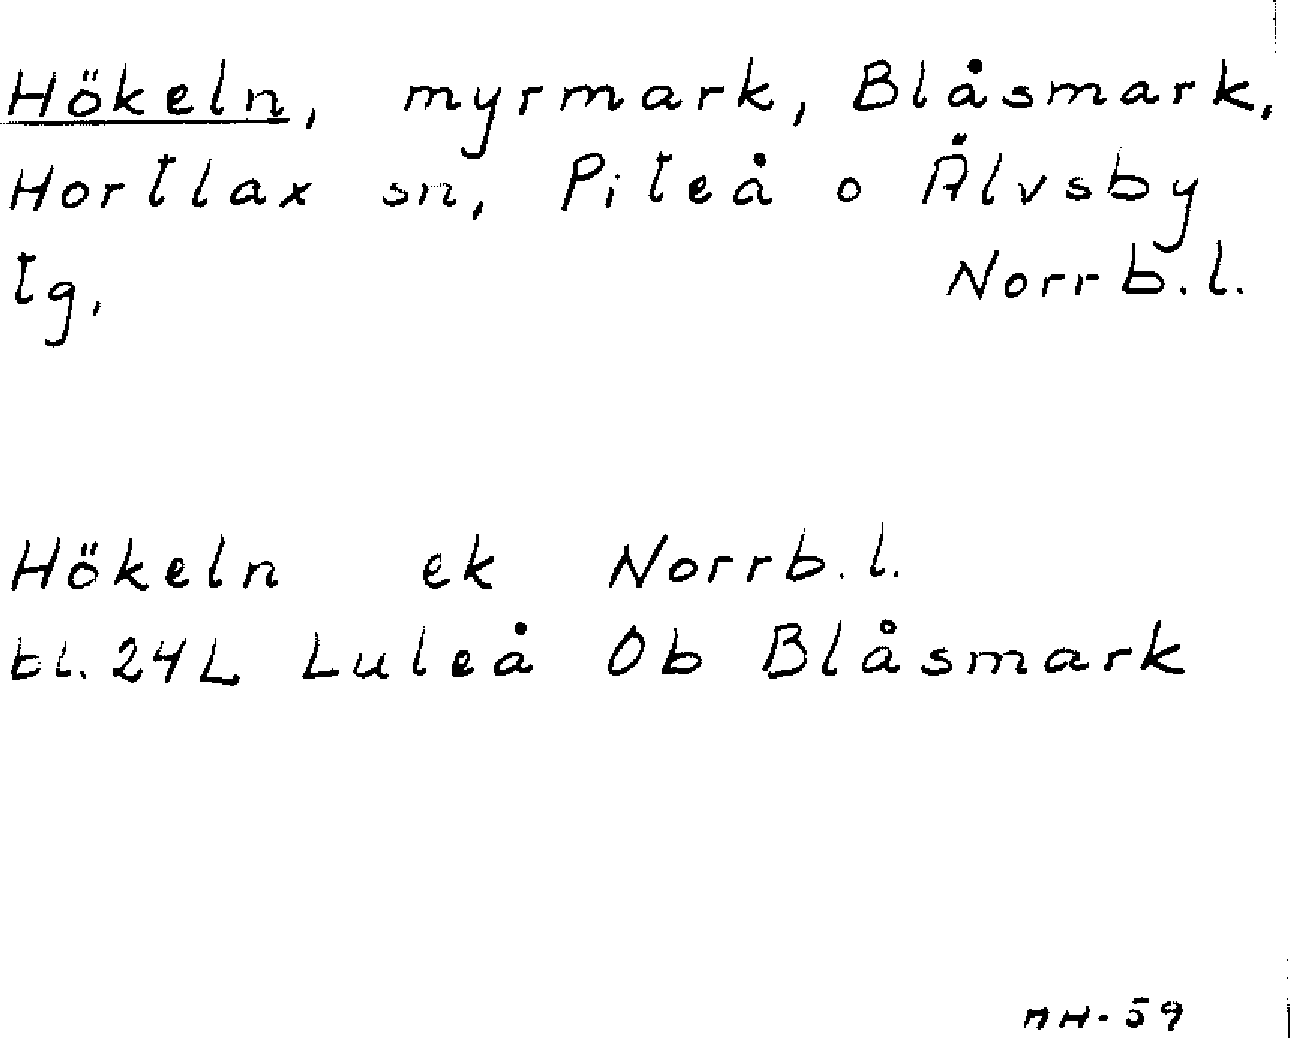 Hökeln, myrmark, Blåsmark,
Hortlax sn, Piteå o Älvsby
tg, Norrb.l.
Hökeln ek Norrb.l.
bl. 24L Luleå Ob Blåsmark
MH-59